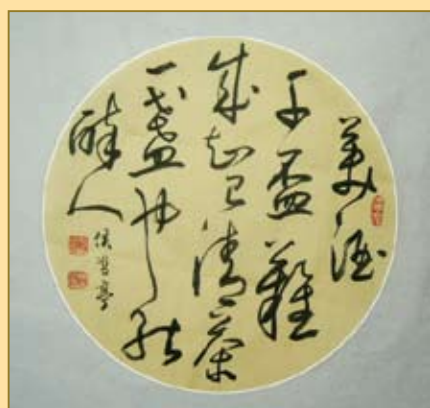 美酒
千盃難
成知己清茶
一盏也能
醉人